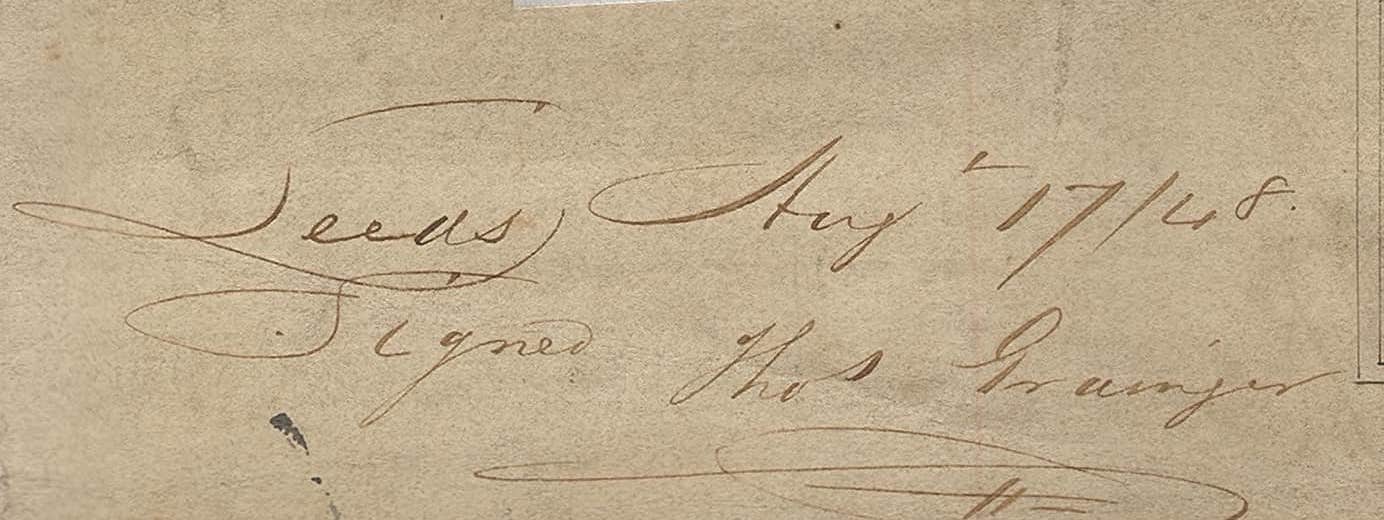 Leeds Augt 17/48.
Signed Thos Grainger